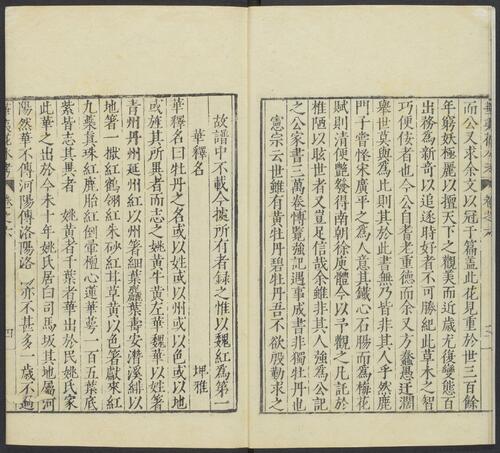 而公又求余文以冠于篇蓋此花見重於世三百餘
年窮妖極麗以擅天下之觀美而近歲尤復變態百
出務為新奇以追逐時好者不可勝紀此草木之智
巧便佞者也今公自耆老重德而余又方蠢愚迂濶
舉世莫與為比則其於此書無乃皆非其人乎然鹿
門子嘗怪宋廣平之為人意其鐵心石腸而為梅花
賦則清便艷發得南朝徐庾體今以予觀之凡託於
椎陋以眩世者又豈足信哉余雖非其人強為公記
之公家書三萬卷慱覽強記遇事成書非獨牡丹也
憲宗云世雖有黃牡丹碧牡丹吾不欲殷勤求之
故譜中不載今據所有者録之惟以魏紅為第一
華釋名　坤雅
華釋名曰牡丹之名或以姓或以州或以色或以地
或旌其所異者而志之姚黃牛黃左華魏華以姓著
青州丹州延州紅以州著細葉麤葉壽安潛溪緋以
地著一擫紅鶴翎紅朱砂紅甘草黃以色著獻來紅
九蘂真珠紅鹿胎紅倒暈檀心蓮華萼一百五葉底
紫皆志其異者　姚黃者千葉者華出於民姚氏家
此華之出於今未十年姚氏居白司馬坂其地屬河
陽然華不傳河陽傳洛陽洛　亦不甚多一歲不過
卷之六　四